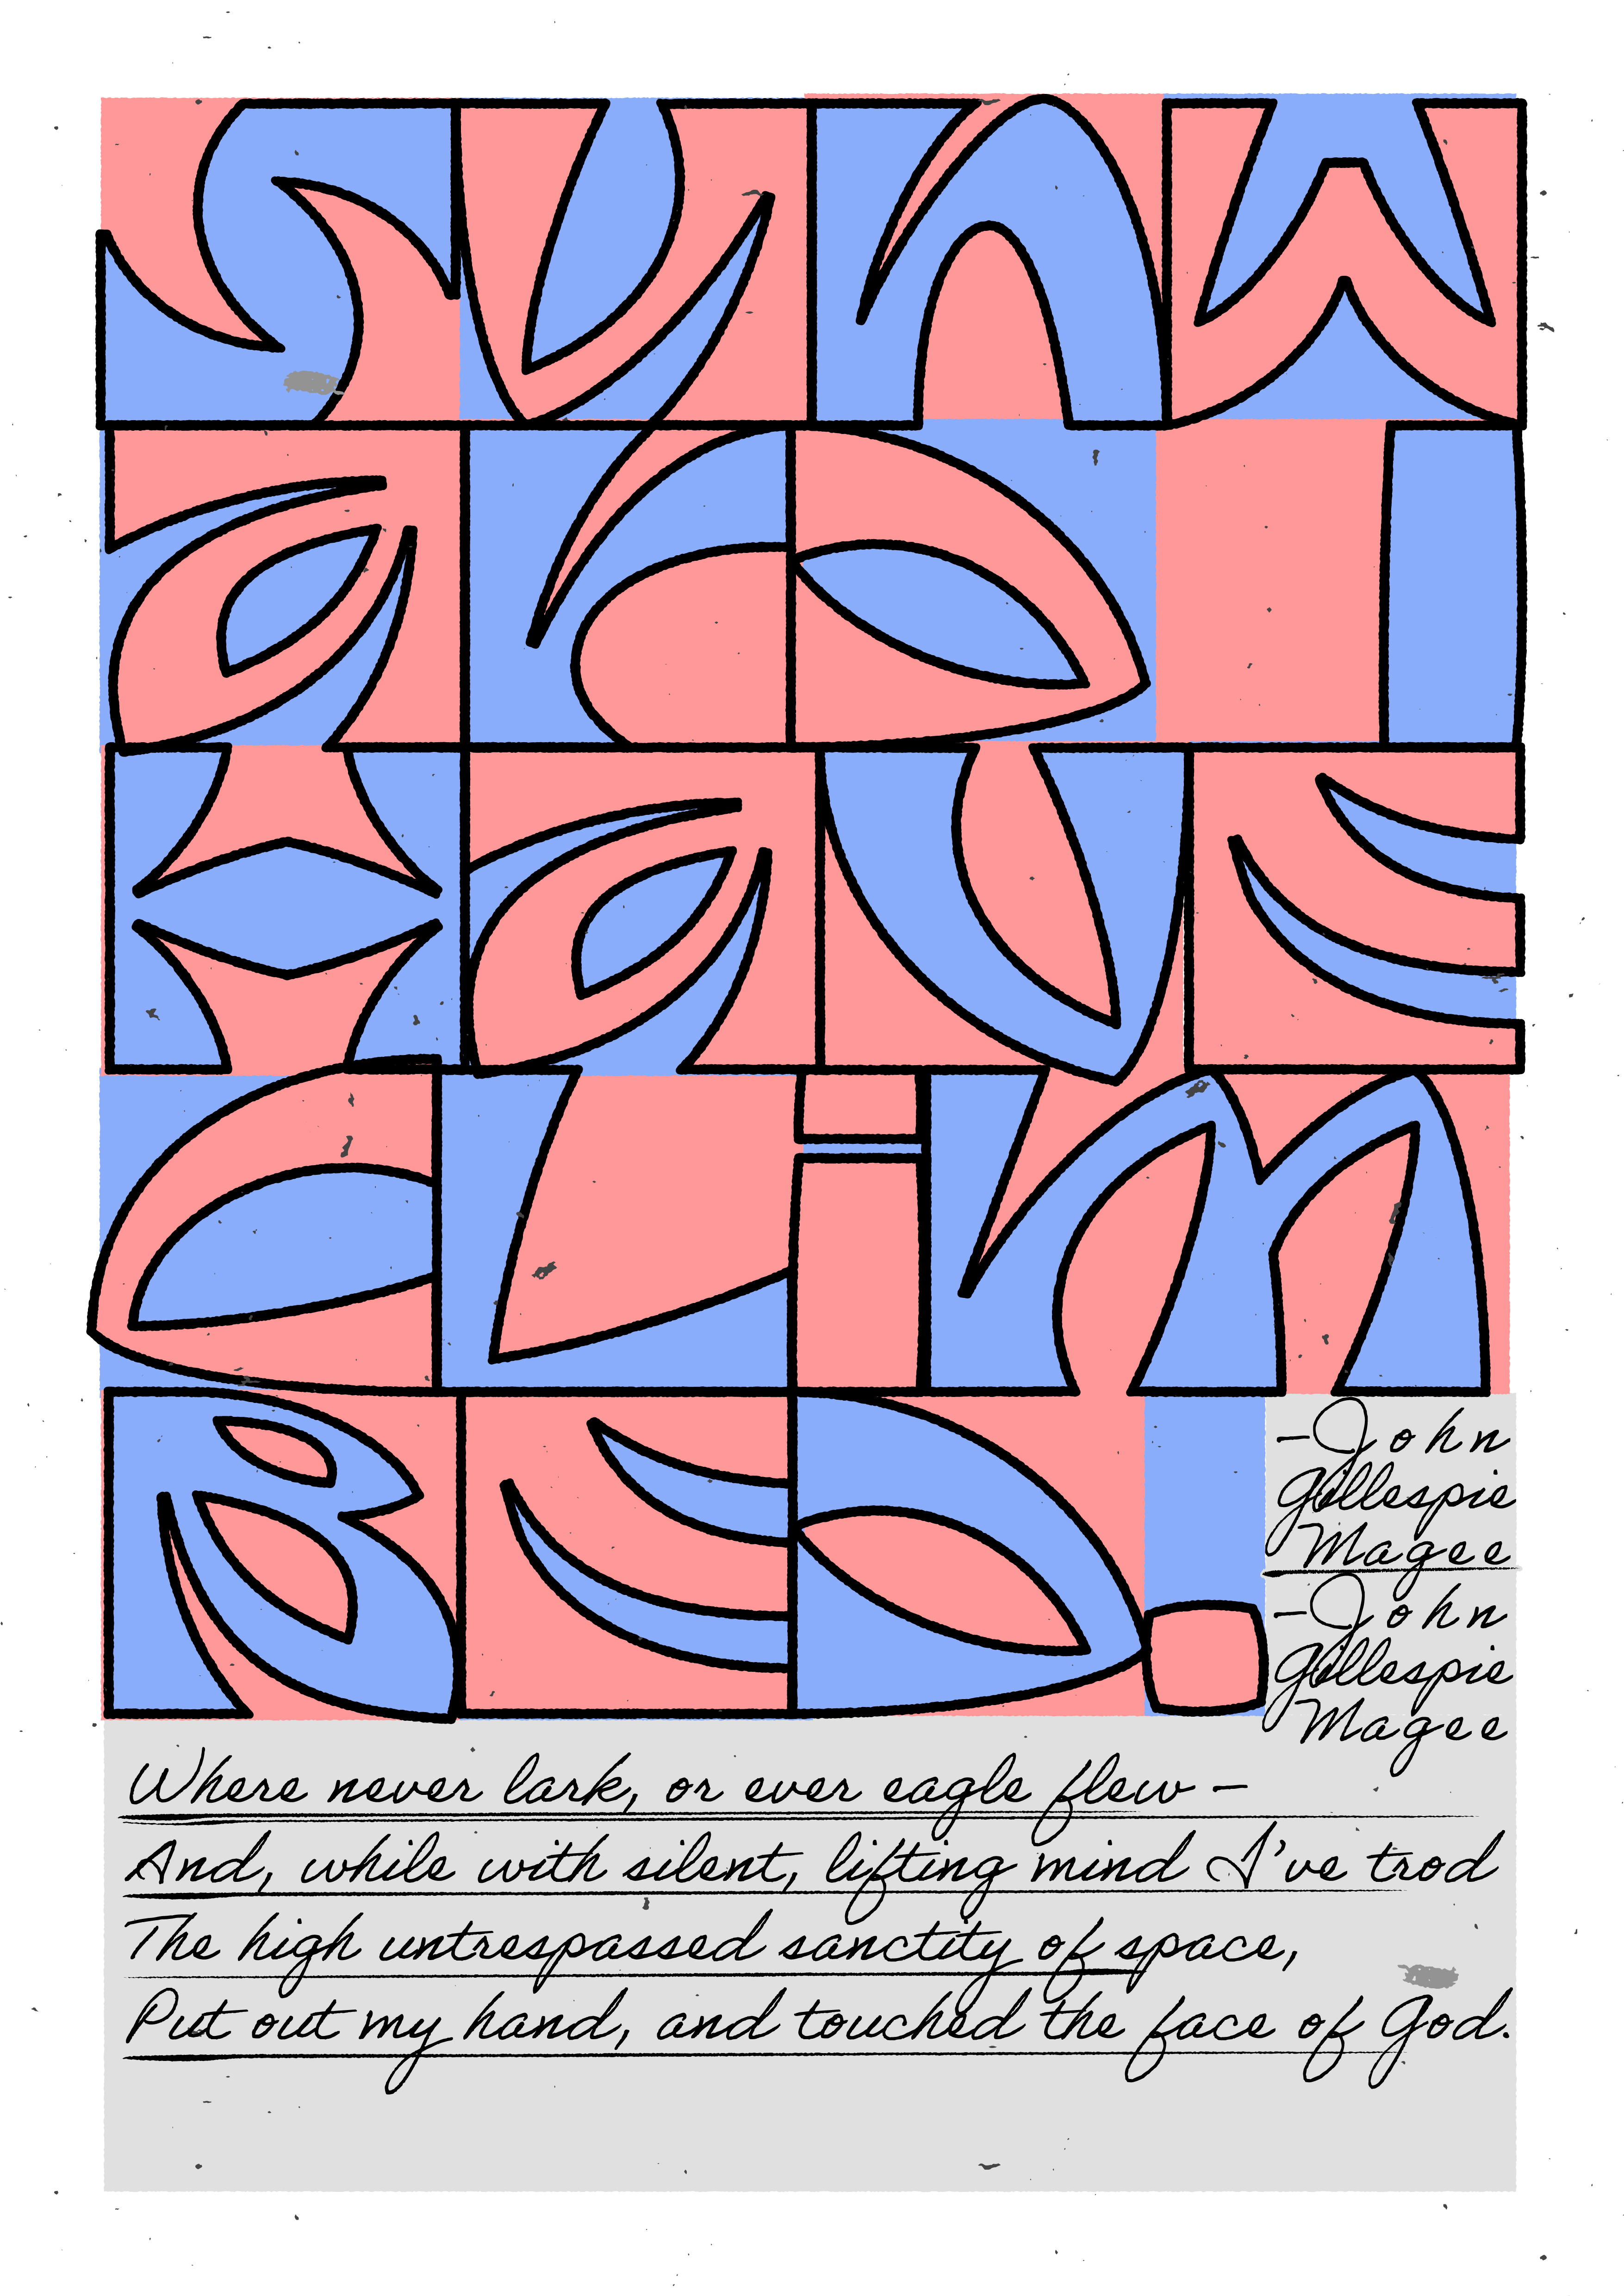 SUNW
ARD I
HAVE
CLIM
BED.
–John
Gillespie
Magee
–John
Gillespie
Magee
Where never lark, or ever eagle flew –
And, while with silent, lifting mind I've trod
The high untrespassed sanctity of space,
Put out my hand, and touched the face of God.